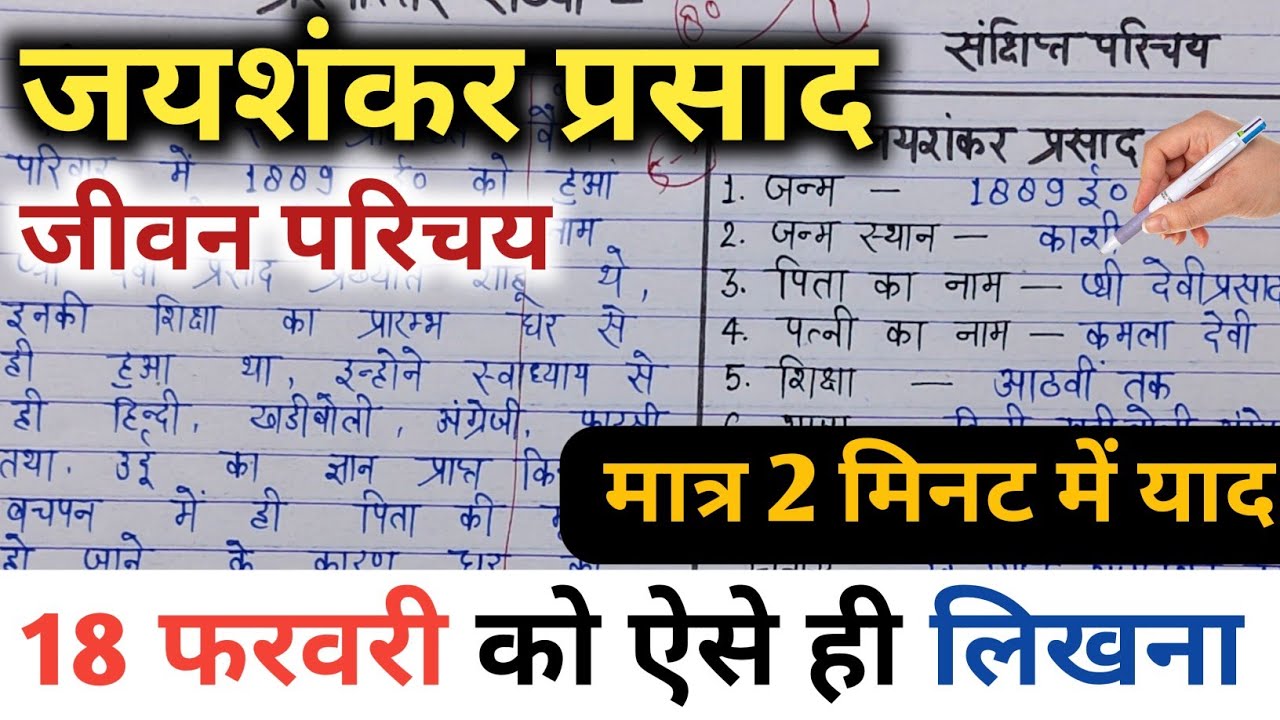 संक्षिप्त परिचय
जयशंकर प्रसाद
जीवन परिचय
परिवार में 1889 ई० को हुआ
प्रसाद थे,
इनकी शिक्षा का प्रारम्भ घर से
ही हुआ था, इन्होने स्वाध्याय से
ही हिन्दी, खडीबोली, अंग्रेजी,
तथा. उर्दू का ज्ञान प्राप्त
बचपन में ही पिता की
हो जाने के कारण घर
प्रसाद
1. जन्म — 1889 ई०
2. जन्म स्थान — काशी
3. पिता का नाम — श्री देवीप्रसाद
4. पत्नी का नाम — कमला देवी
5. शिक्षा — आठवीं तक
मात्र 2 मिनट में याद
18 फरवरी को ऐसे ही लिखना